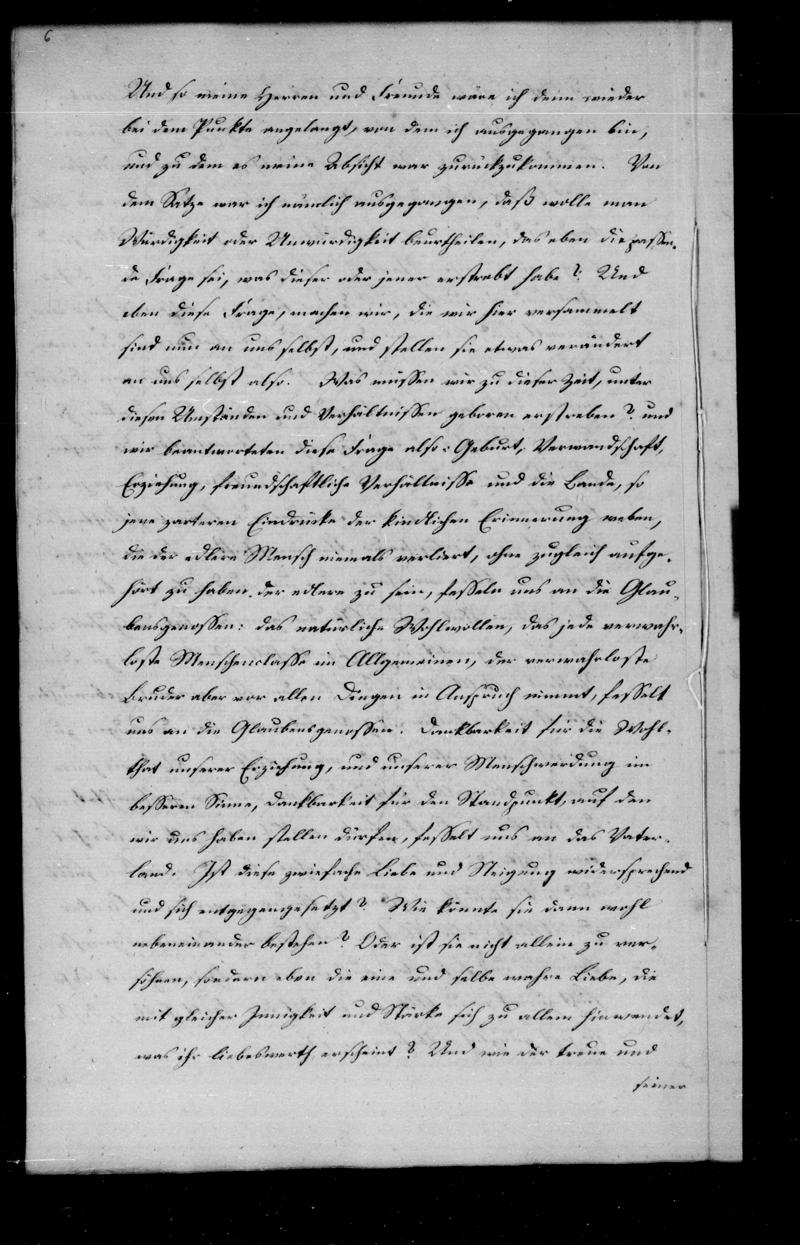 6
Und so meine Herren und Freunde wäre ich denn wieder
bei dem Punkte angelangt, von dem ich ausgegangen bin,
und zu dem es meine Absicht war zurückzukommen. Von
dem Satze war ich nämlich ausgegangen, daß wolle man
Würdigkeit oder Unwürdigkeit beurtheilen, das eben die passen-
de Frage sei, was dieser oder jener erstrebt habe? Und
eben diese Frage, machen wir, die wir hier versammelt
sind nun an uns selbst, und stellen sie etwas verändert
an uns selbst also. Was müssen wir zu dieser Zeit, unter
diesen Umständen und Verhältnissen geboren erstreben? und
wir beantworteten diese Frage also: Geburt, Verwandschaft,
Erziehung, freundschaftliche Verhältnisse und die Bande, so
jene zarteren Eindrücke der kindlichen Erinnerung weben,
die der edlere Mensch niemals verliert, ohne zugleich aufge-
hört zu haben der edlere zu sein, fesseln uns an die Glau-
bensgenossen: das natürliche Wohlwollen, das jede verwahr-
loste Menschenclasse im Allgemeinen, der verwahrloste
Bruder aber vor allen Dingen in Anspruch nimmt, fesselt
uns an die Glaubensgenossen. Dankbarkeit für die Wohl-
that unserer Erziehung, und unserer Menschwerdung im
besseren Sinne, Dankbarkeit für den Standpunkt, auf den
wir uns haben stellen dürfen, fesselt uns an das Vater-
land. Ist diese zwiefache Liebe und Neigung widersprechend
und sich entgegengesetzt? Wie könnte sie dann wohl
nebeneinander bestehen? Oder ist sie nicht allein zu ver-
söhnen, sondern eben die eine und selbe wahre Liebe, die
mit gleicher Innigkeit und Stärke sich zu allem hinwendet,
was ihr liebeswerth erscheint? Und wie der treue und
seiner